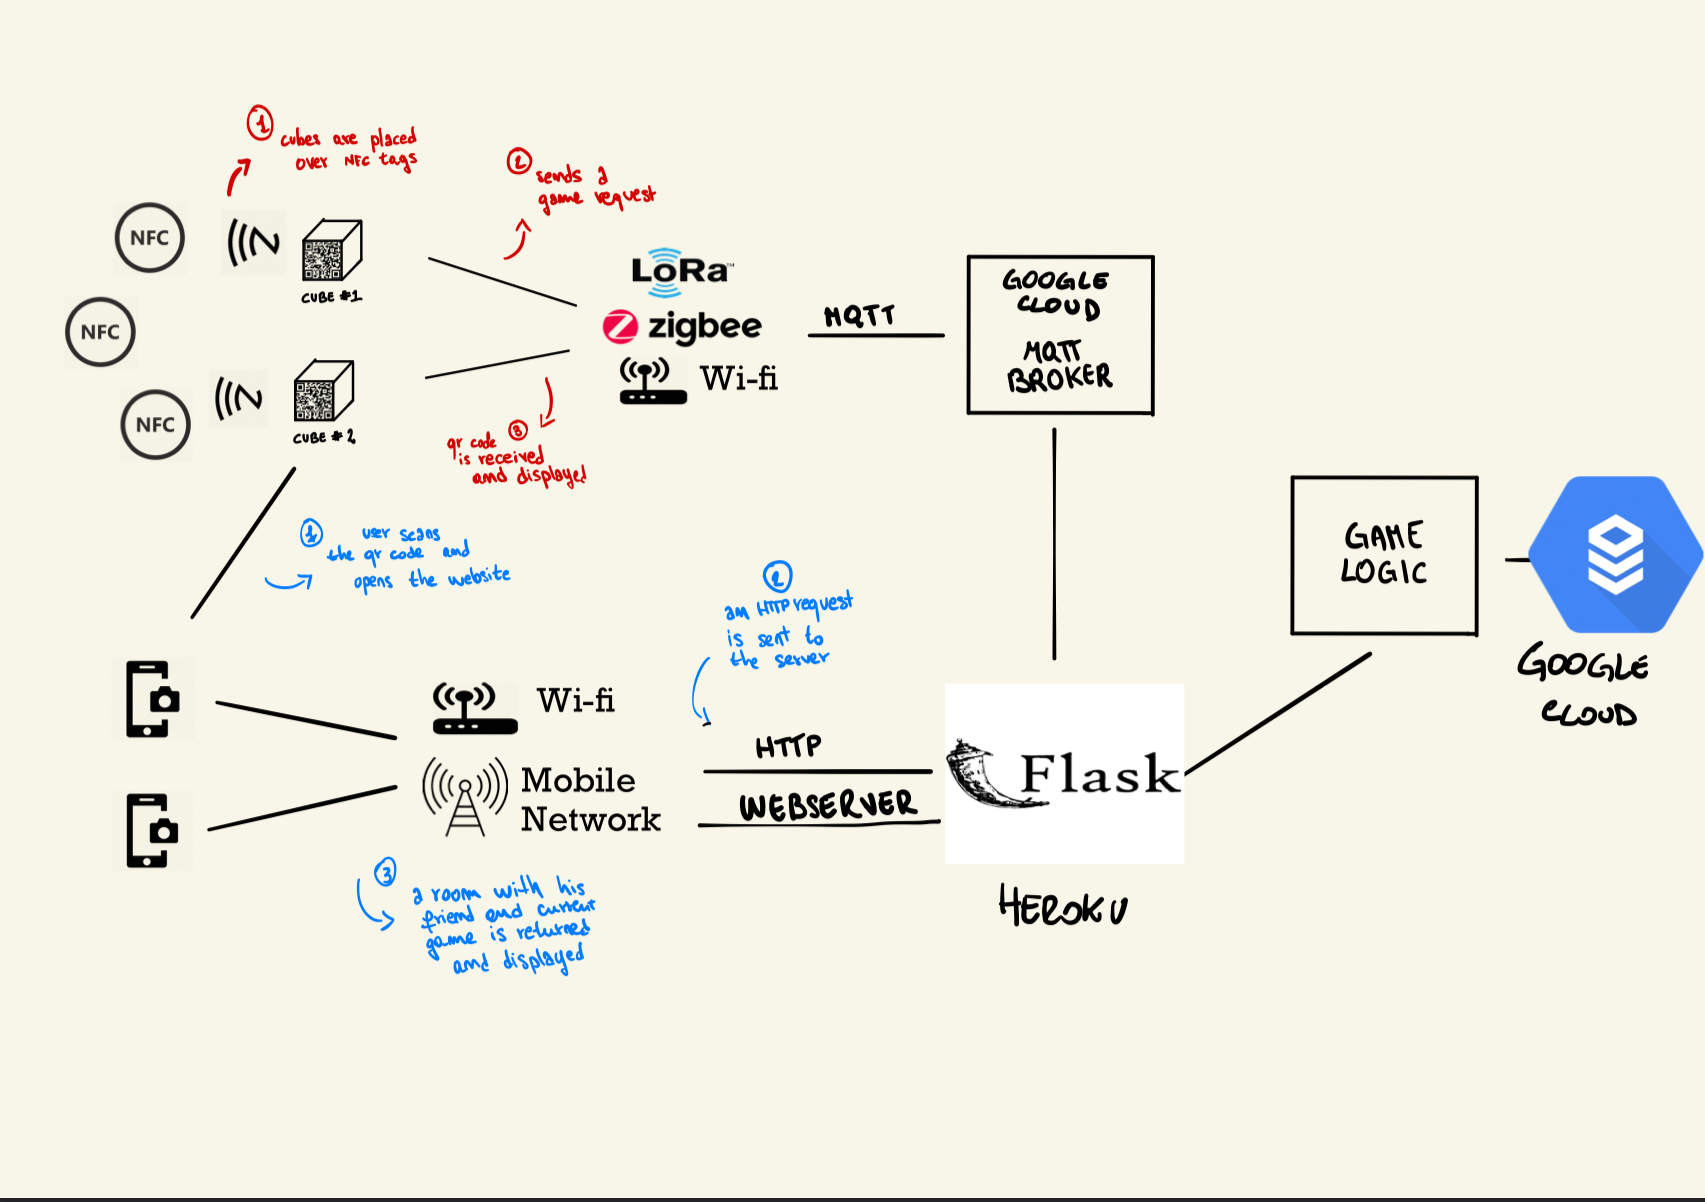 1
cubes are placed
over NFC tags
2
sends a
game request
NFC
CUBE #1
NFC
NFC
CUBE #2
LoRa™
zigbee
Wi-fi
MQTT
GOOGLE
CLOUD
MQTT
BROKER
qr code 3
is received
and displayed
1
user scans
the qr code and
opens the website
2
an HTTP request
is sent to
the server
GAME
LOGIC
GOOGLE
CLOUD
Wi-fi
Mobile
Network
HTTP
WEBSERVER
Flask
HEROKU
3
a room with his
friend and current
game is returned
and displayed